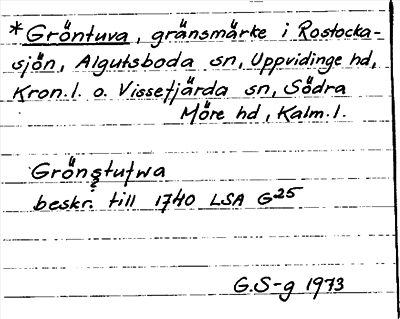 *Gröntuva, gränsmärke i Rostocka-
sjön, Algutsboda sn, Uppvidinge hd,
Kron.l. o. Vissefjärda sn, Södra
Möre hd, Kalm.l.
Grönstufwa
beskr. till 1740 LSA G25
G.S-g 1973